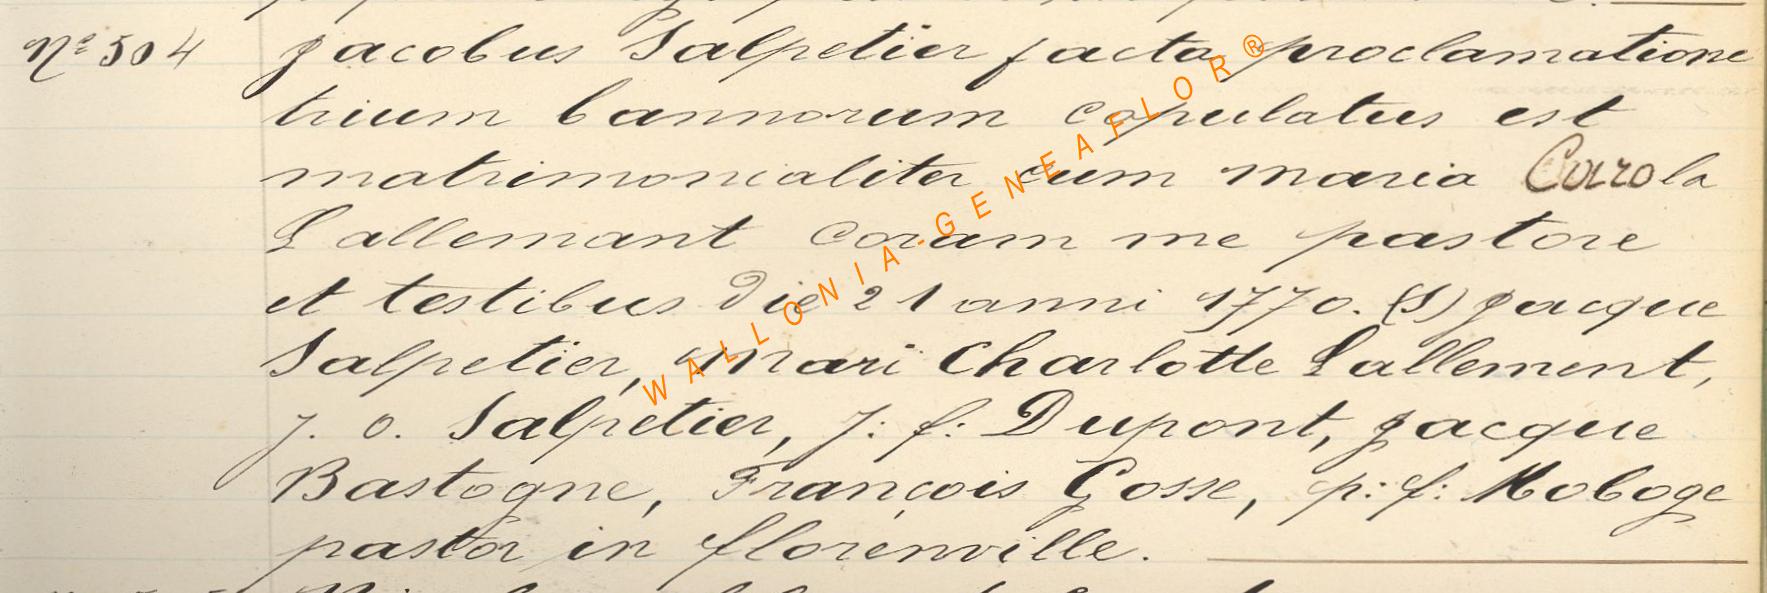 Nº 504 Jacobus Salpetier facta proclamatione
trium bannorum copulatus est
matrimonialiter cum maria Carola
Lallemant coram me pastore
et testibus die 21 anni 1770. (S) Jacque
Salpetier, Mari Charlotte Lallement,
J. o. Salpetier, J: f: Dupont, Jacque
Bastogne, François Gosse, p: f: Moboge
pastor in florenville.
WALLONIA-GENEAFLOR®